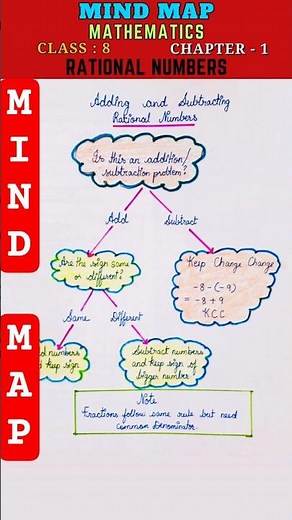 MIND MAP
MATHEMATICS
CLASS : 8 CHAPTER - 1
RATIONAL NUMBERS
MIND
MAP
Adding and Subtracting
Rational Numbers
Is this an addition/
subtraction problem?
Add Subtract
Are the sign same
or different?
Keep Change Change
-8-(-9)
= -8+9
KCC
Same Different
numbers
keep sign
Subtract numbers
and keep sign of
bigger number
Note
Fractions follow same rule but need
Common Denominator.